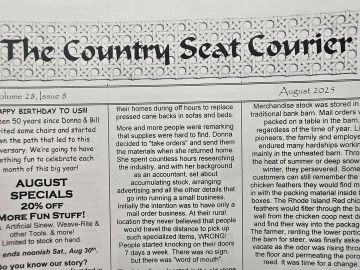 The Country Seat Courier
Volume 28, Issue 8
August 2025
HAPPY BIRTHDAY TO US!!!
been 50 years since Donna & Bill
started some chairs and started
down the path that led to this
anniversary. We're going to have
something fun to celebrate each
month of this big year!
AUGUST
SPECIALS
20% OFF
MORE FUN STUFF!
Artificial Sinew, Weave-Rite &
other Tools, & more!
Limited to stock on hand.
ends noonish Sat., Aug 30th.
Do you know our story?
their homes during off hours to replace
pressed cane backs in sofas and beds.
More and more people were remarking
that supplies were hard to find. Donna
decided to "take orders" and send them
the materials when she returned home.
She spent countless hours researching
the industry, and with her background
as an accountant, set about
accumulating stock, arranging
advertising and all the other details that
go into running a small business.
Initially the intention was to have only a
mail order business. At their rural
location they never believed that people
would travel the distance to pick up
such specialized items, WRONG!
People started knocking on their doors
7 days a week. There was no sign,
but there was "word of mouth".
Merchandise stock was stored in
traditional bank barn. Mail orders
packed on a table in the barn,
regardless of the time of year.
pioneers, the family and employees
endured many hardships working
mainly in the unheated barn. Through
the heat of summer or deep snow
winter, they persevered. Some
customers can still remember the
chicken feathers they would find
in with the packing material inside
boxes. The Rhode Island Red chicken
feathers would filter through the
wall from the chicken coop next door
and find their way into the package
The farmer, renting the lower portion
the barn for steer, was finally asked
vacate as the odor was rising through
the floor and permeating the
reed. It was time for a change.